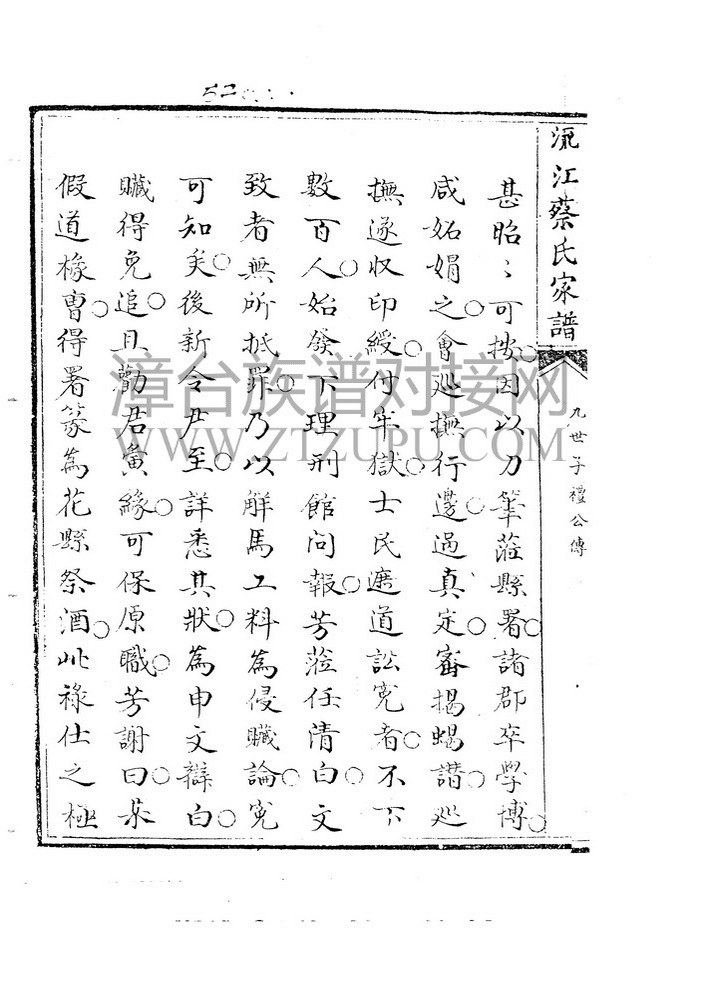 流江蔡氏家譜
九世子禮公傳
甚昭〻可按因以刀筆蒞縣署諸郡卒學博
咸妬娟之會巡撫行邊過真定審揭蝎譛巡
撫遂收印綬付牢獄士民遮道訟寃者不下
數百人始發下理刑館問報芳蒞任清白文
致者無所抵罪乃以解馬工料為侵贓論寃
可知矣後新令尹至詳悉其狀為申文辯白
贓得免追且勸君夤緣可保原職芳謝曰
假道椽曺得署篆為花縣祭酒此祿仕之極
漳台族谱对接网
WWW.ZTZUPU.COM